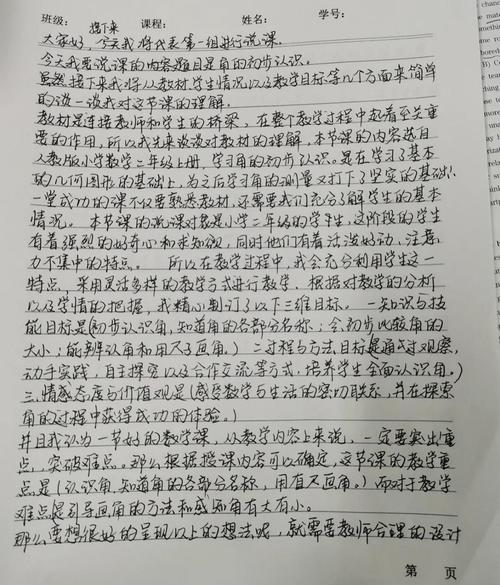 班级： 课程： 姓名： 学号：
接下来
大家好，今天我将代表第一组进行说课。
今天我要说课的内容题目是角的初步认识。
接下来我将从教材,学生情况以及教学目标等几个方面来简单
的谈一谈我对这节课的理解。
教材是连接教师和学生的桥梁，在整个教学过程中起着至关重
要的作用，所以我先来谈谈对教材的理解，本节课的内容选自
人教版小学数学二年级上册，学习角的初步认识。是在学习了基本
的几何图形的基础上，为之后学习角的测量又打下了坚实的基础。
一堂成功的课不仅要熟悉教材，还需要我们充分了解学生的基本
情况。 本节课的说课对象是小学二年级的学生，这阶段的学生
有着强烈的好奇心和求知欲，同时他们有着活泼好动、注意
力不集中的特点。 所以在教学过程中，我会充分利用学生这一
特点，采用灵活多样的教学方式进行教学、根据对教学的分析
以及学情的把握，我精心制订了以下三维目标。 一知识与技
能目标是(初步认识角，知道角的各部分名称；会初步比较角的
大小；能辨认角和用尺子画角。) 二过程与方法目标是通过观察，
动手实践，自主探究以及合作交流等方式，培养学生全面认识角。)
三、情感态度与价值观是(感受数学与生活的密切联系，并在探索
角的过程中获得成功的体验。)
并且我认为一节好的数学课，从教学内容上来说，一定要突出重
点，突破难点。那么根据授课内容可以确定，这节课的教学重
点是(认识角，知道角的各部分名称，用直尺画角。) 而对于教学
难点是引导画角的方法和感知角有大有小。
那么要想很好的呈现以上的想法呢，就需要教师合理的设计
第 页